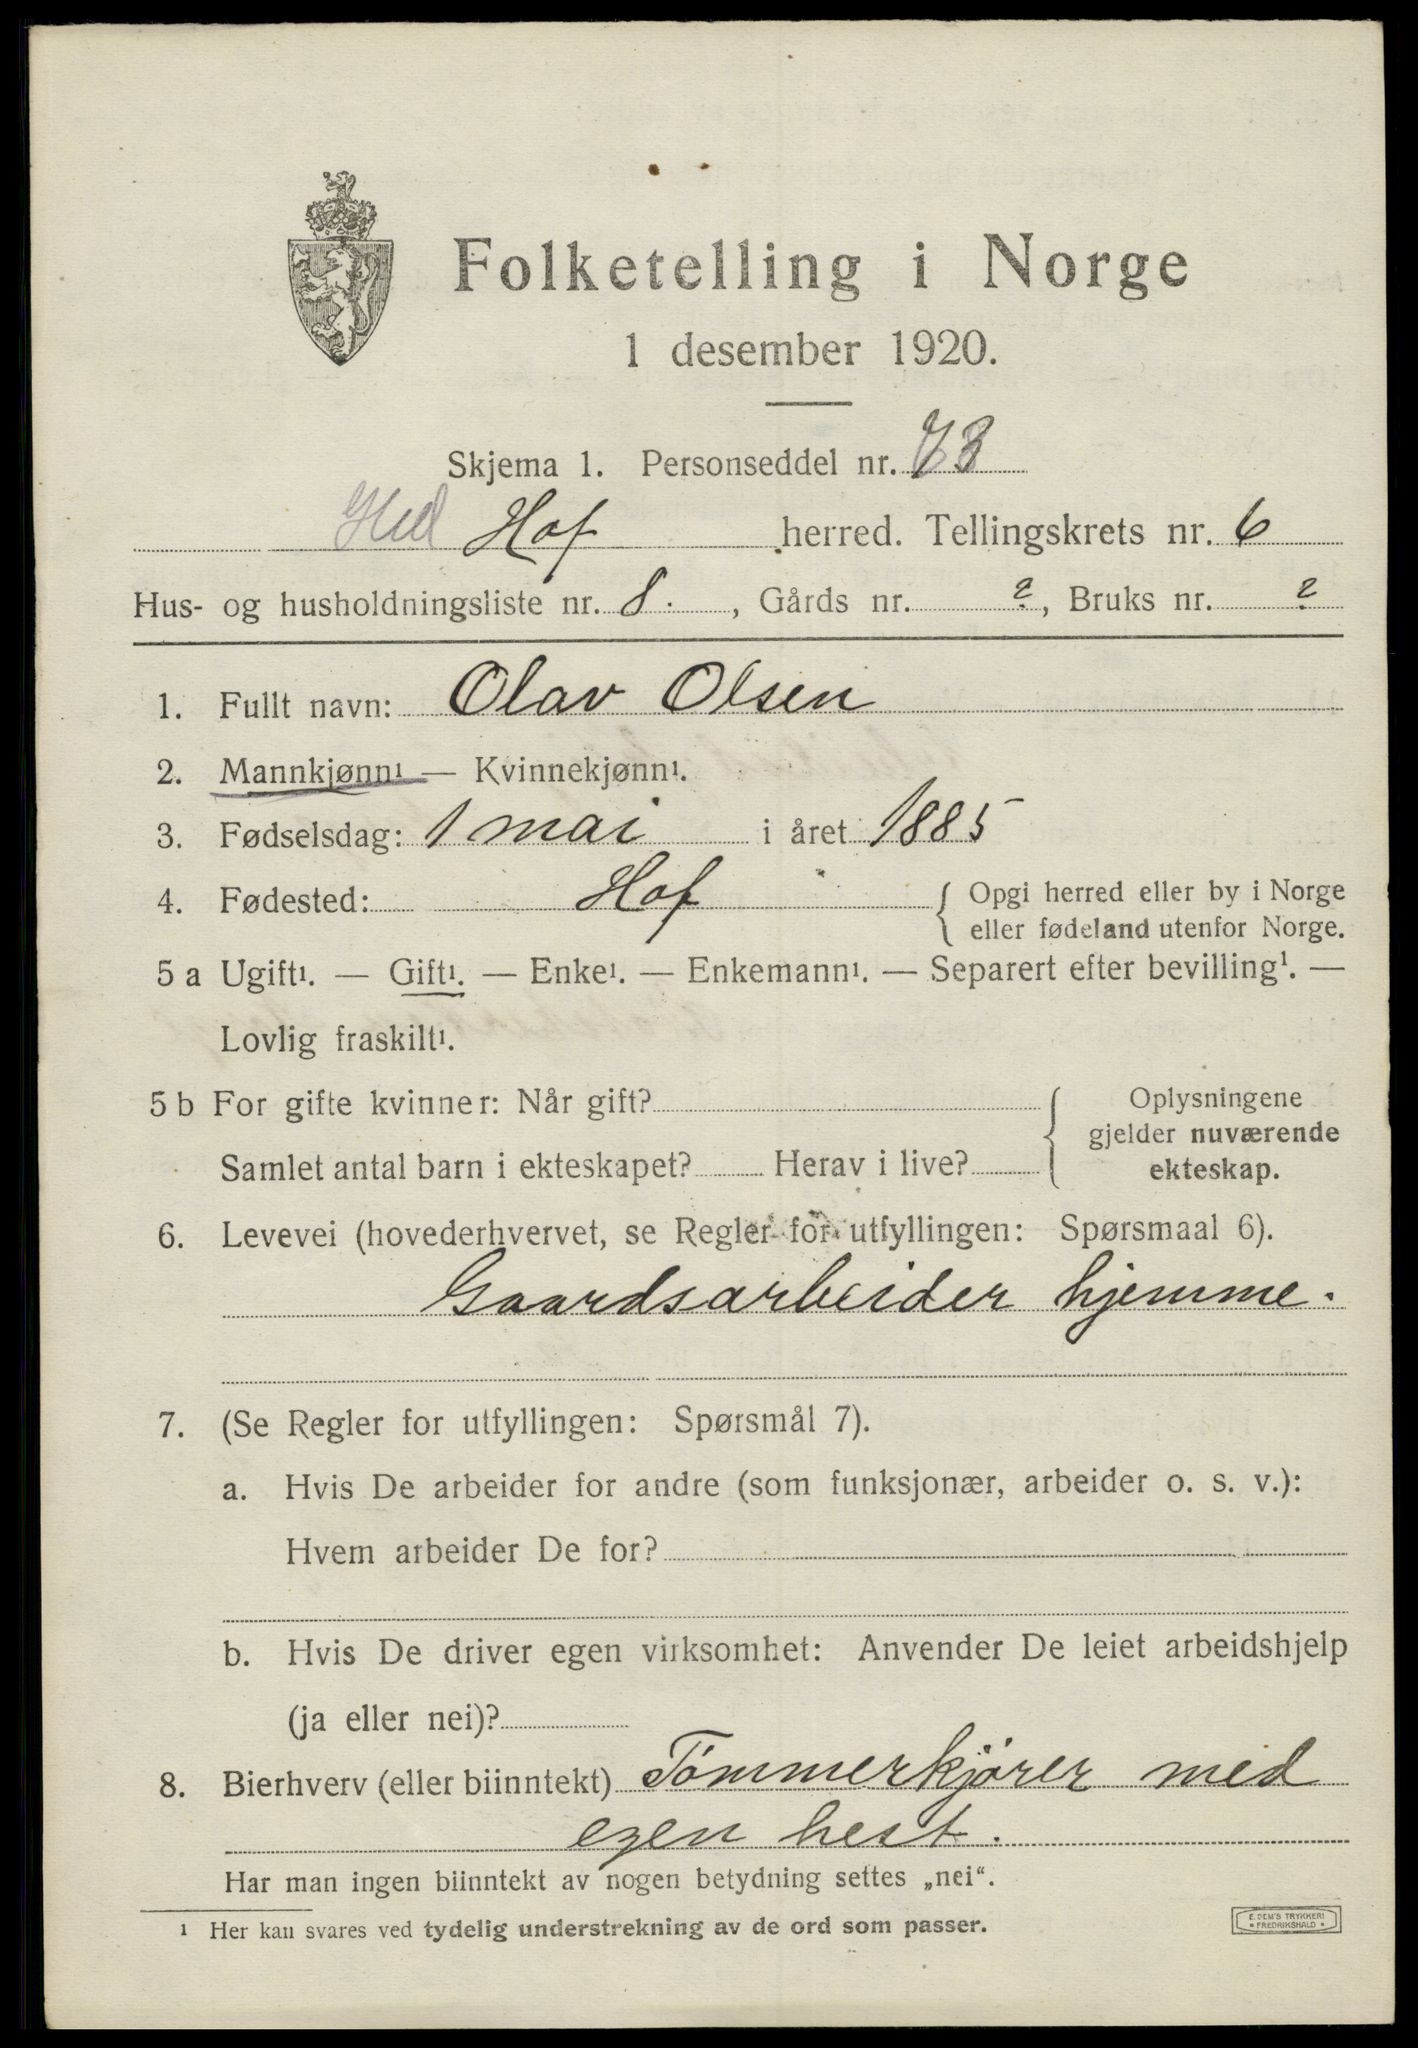 Folketelling i Norge
1 desember 1920.
Skjema 1. Personseddel nr. 73
Hed Hof herred. Tellingskrets nr. 6
Hus- og husholdningsliste nr. 8. , Gårds nr. ? , Bruks nr. ?
1. Fullt navn: Olav Olsen
2. Mannkjønn¹ — Kvinnekjønn¹.
3. Fødselsdag: 1 mai i året 1885
4. Fødested: Hof { Opgi herred eller by i Norge
eller fødeland utenfor Norge.
5 a Ugift¹. — Gift¹. — Enke¹. — Enkemann¹. — Separert efter bevilling¹. —
Lovlig fraskilt¹.
5 b For gifte kvinner: Når gift?
Samlet antal barn i ekteskapet? Herav i live?
{ Oplysningene
gjelder nuværende
ekteskap.
6. Levevei (hovederhvervet, se Regler for utfyllingen: Spørsmaal 6).
Gaardsarbeider hjemme.
7. (Se Regler for utfyllingen: Spørsmål 7).
a. Hvis De arbeider for andre (som funksjonær, arbeider o. s. v.):
Hvem arbeider De for?
b. Hvis De driver egen virksomhet: Anvender De leiet arbeidshjelp
(ja eller nei)?
8. Bierhverv (eller biinntekt) Tømmerkjører med
egen hest.
Har man ingen biinntekt av nogen betydning settes „nei“.
¹ Her kan svares ved tydelig understrekning av de ord som passer.
E. DEM'S TRYKKERI
* FREDRIKSHALD *